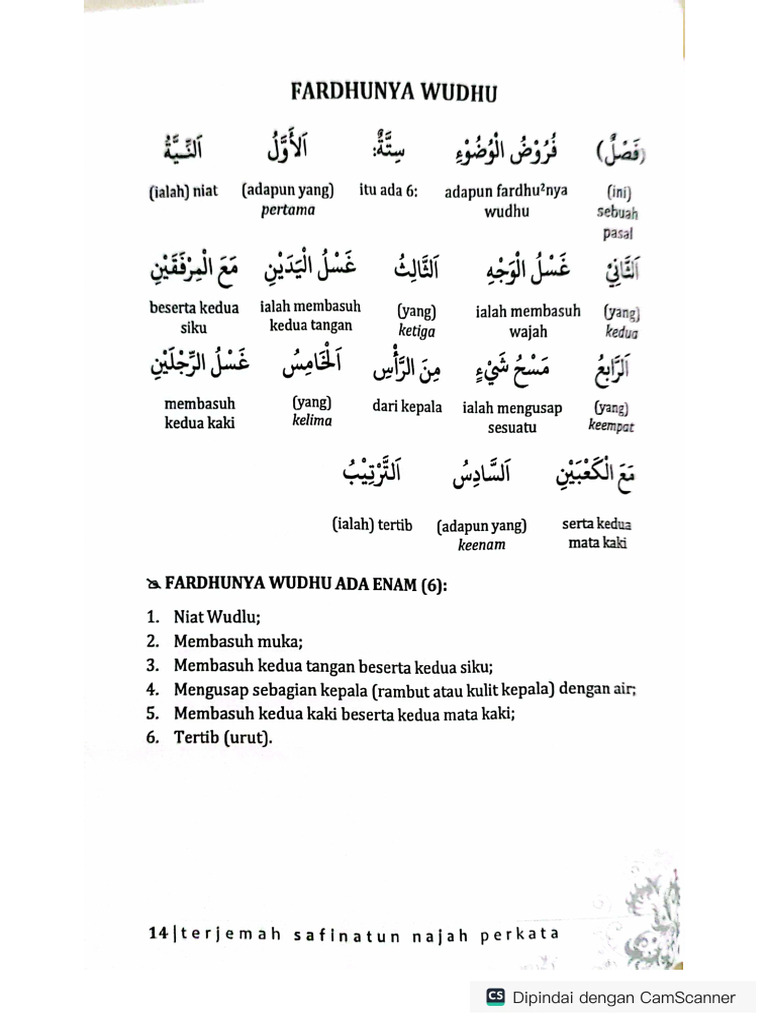 FARDHUNYA WUDHU
(فَصْلٌ) فُرُوْضُ الْوُضُوْءِ سِتَّةٌ: اَلْأَوَّلُ اَلنِّيَّةُ
(ialah) niat (adapun yang) itu ada 6: adapun fardhu²nya (ini)
pertama wudhu sebuah
pasal
اَلثَّانِيْ غَسْلُ الْوَجْهِ اَلثَّالِثُ غَسْلُ الْيَدَيْنِ مَعَ الْمِرْفَقَيْنِ
beserta kedua ialah membasuh (yang) ialah membasuh (yang)
siku kedua tangan ketiga wajah kedua
اَلرَّابِعُ مَسْحُ شَيْءٍ مِنَ الرَّأْسِ اَلْخَامِسُ غَسْلُ الرِّجْلَيْنِ
membasuh (yang) dari kepala ialah mengusap (yang)
kedua kaki kelima sesuatu keempat
مَعَ الْكَعْبَيْنِ اَلسَّادِسُ اَلتَّرْتِيْبُ
(ialah) tertib (adapun yang) serta kedua
keenam mata kaki
FARDHUNYA WUDHU ADA ENAM (6):
1. Niat Wudlu;
2. Membasuh muka;
3. Membasuh kedua tangan beserta kedua siku;
4. Mengusap sebagian kepala (rambut atau kulit kepala) dengan air;
5. Membasuh kedua kaki beserta kedua mata kaki;
6. Tertib (urut).
14|terjemah safinatun najah perkata
CS Dipindai dengan CamScanner